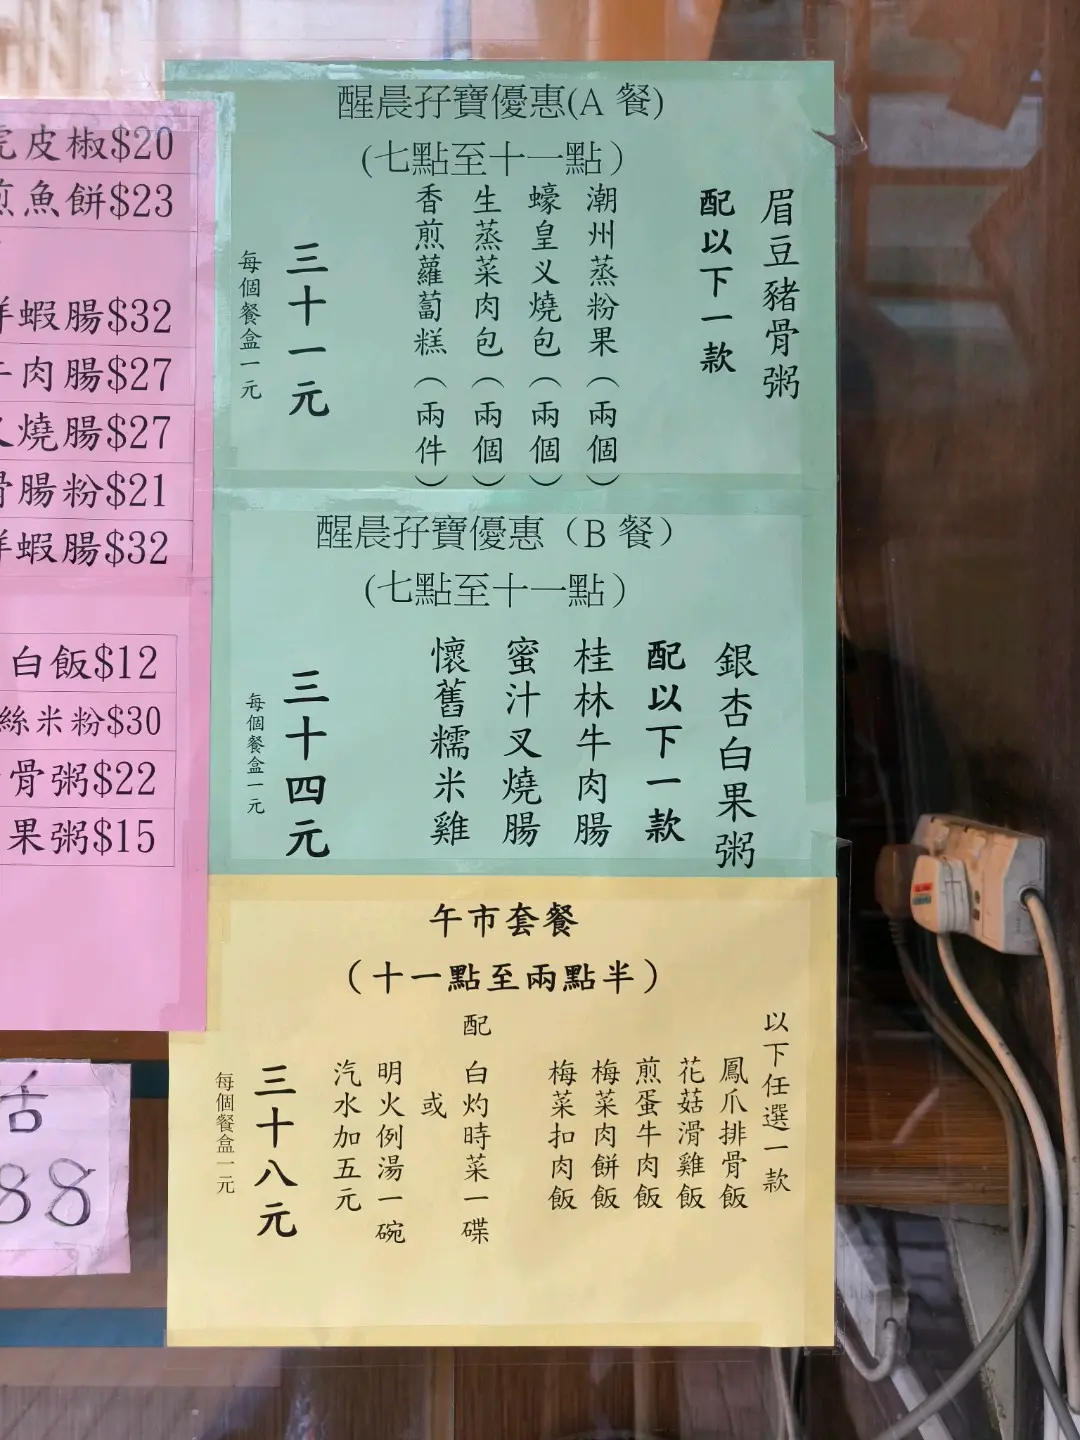 皮椒$20
魚餅$23
蝦腸$32
肉腸$27
燒腸$27
腸粉$21
蝦腸$32
白飯$12
絲米粉$30
骨粥$22
果粥$15
88
醒晨孖寶優惠(A 餐)
(七點至十一點)
眉豆豬骨粥
配以下一款
潮州蒸粉果(兩個)
蠔皇义燒包(兩個)
生蒸菜肉包(兩個)
香煎蘿蔔糕(兩件)
三十一元
每個餐盒一元
醒晨孖寶優惠(B 餐)
(七點至十一點)
銀杏白果粥
配以下一款
桂林牛肉腸
蜜汁叉燒腸
懷舊糯米雞
三十四元
每個餐盒一元
午市套餐
(十一點至兩點半)
以下任選一款
鳳爪排骨飯
花菇滑雞飯
煎蛋牛肉飯
梅菜肉餅飯
梅菜扣肉飯
配
白灼時菜一碟
或
明火例湯一碗
汽水加五元
三十八元
每個餐盒一元